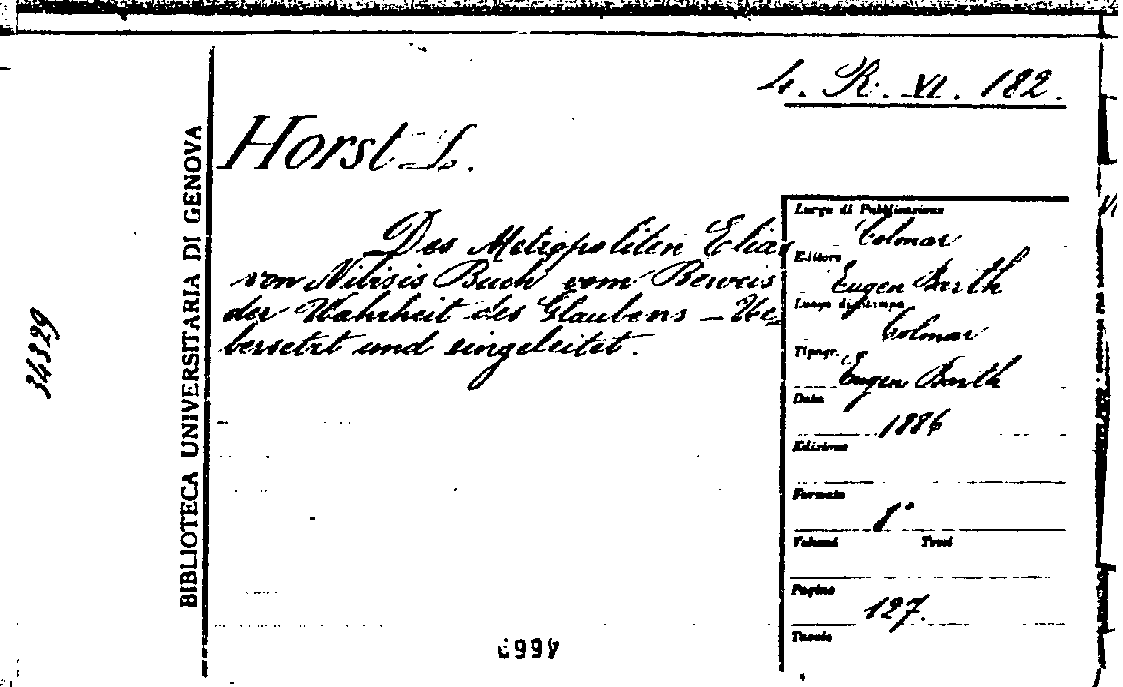 4. R. VI. 182.
Horst L.
Des Metropoliten Elias
von Nibisis Buch vom Beweis
der Wahrheit des Glaubens – Ue-
bersetzt und eingeleitet.
BIBLIOTECA UNIVERSITARIA DI GENOVA
34329
Luogo di Pubblicazione
Colmar
Editore
Eugen Barth
Luogo di stampa
Colmar
Tipogr.
Eugen Barth
Data
1886
Edizione
Formato
8°
Volumi Tomi
Pagine
127.
Tavole